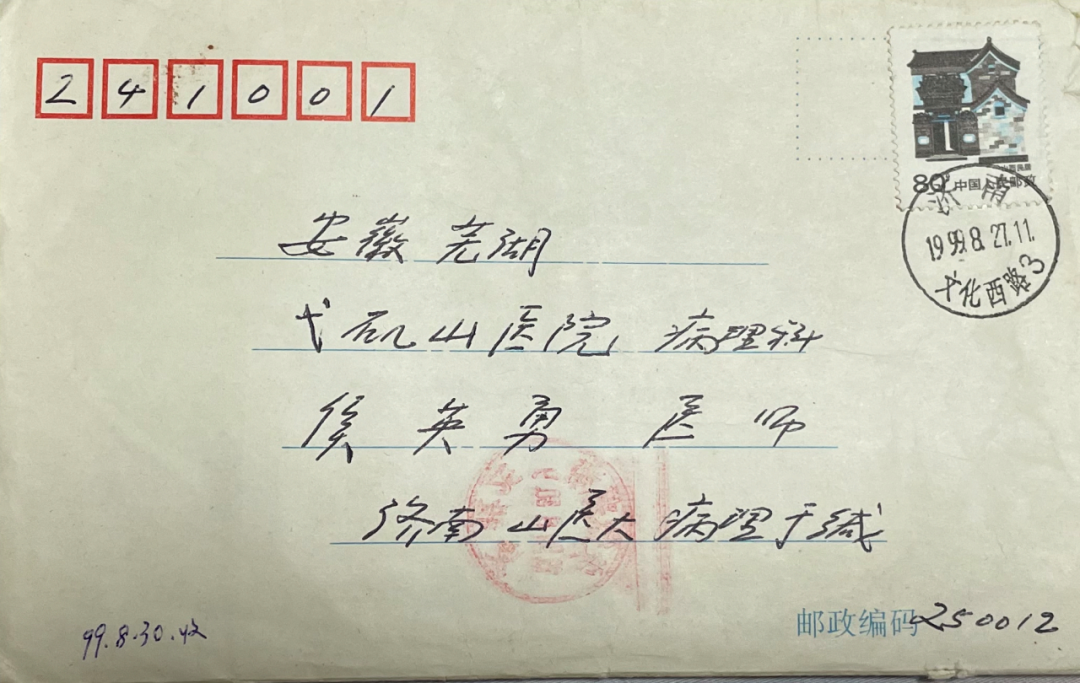 241001
山西民居
80分 中国人民邮政
济南
1999.8.27.11.
文化西路3
安徽芜湖
弋矶山医院 病理科
侯英勇 医师
济南山医大病理于缄
99.8.30.收
邮政编码250012